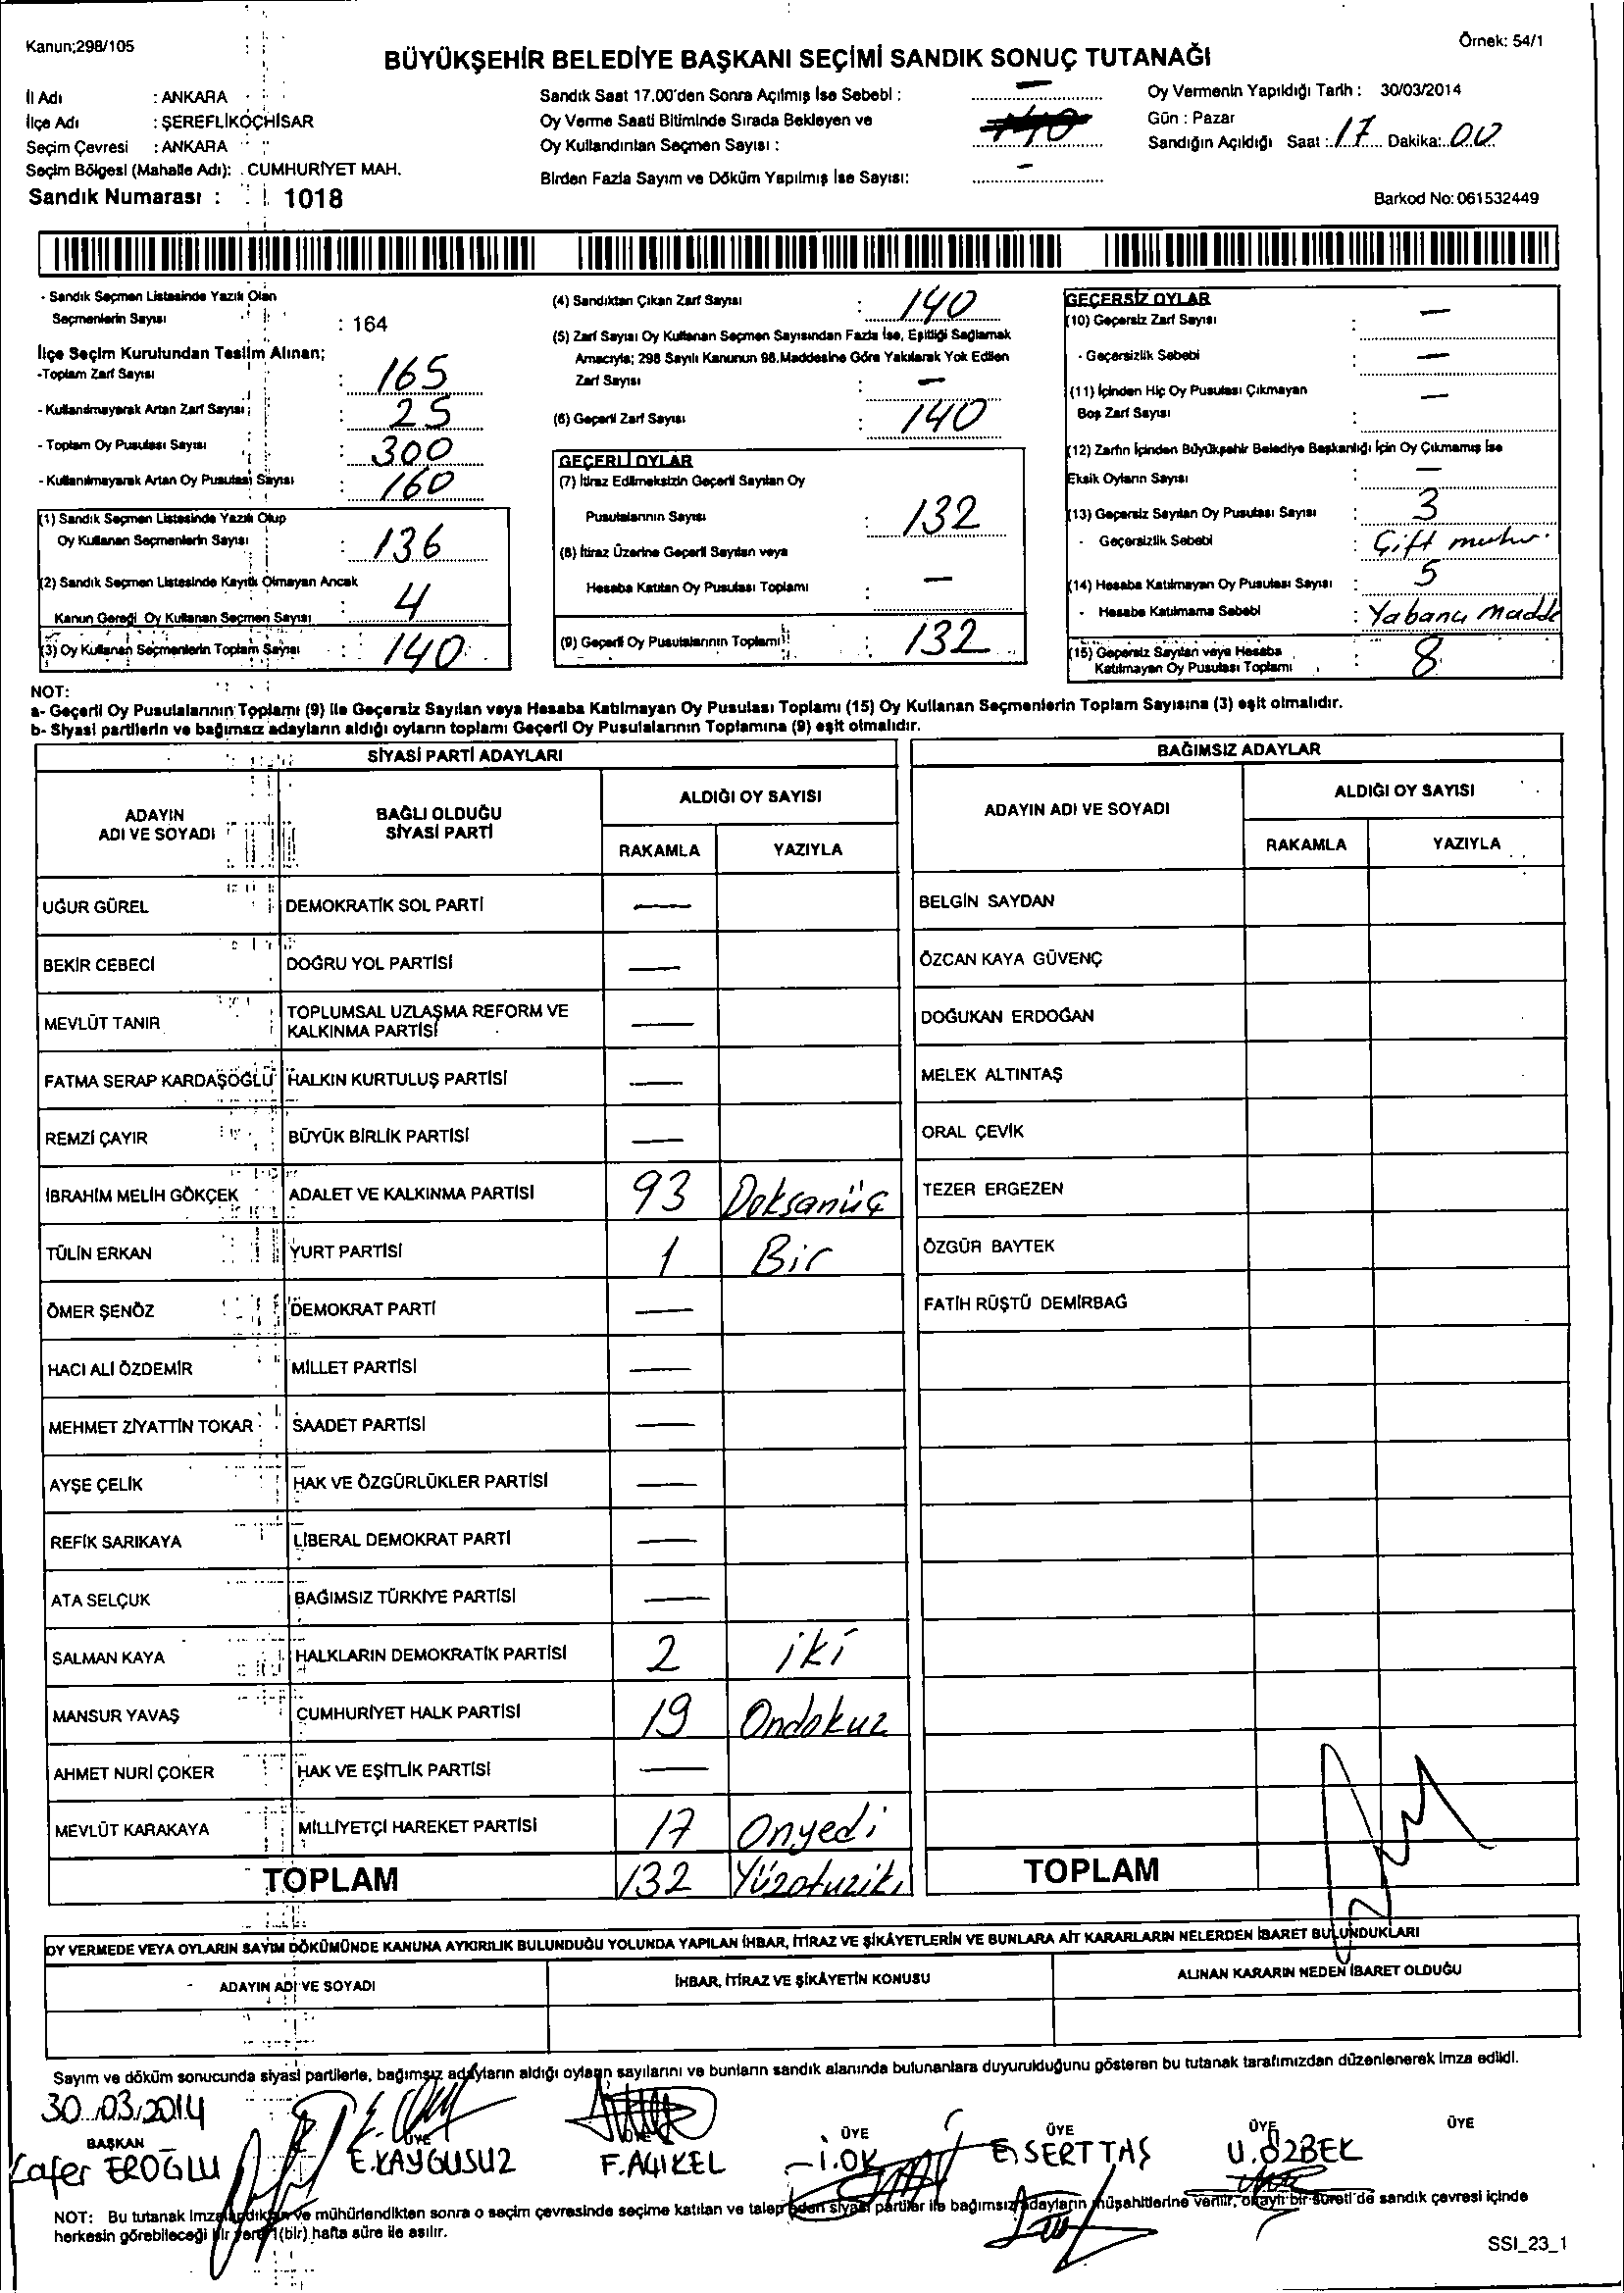 Kanun;298/105
Örnek: 54/1
BÜYÜKŞEHİR BELEDİYE BAŞKANI SEÇİMİ SANDIK SONUÇ TUTANAĞI
İl Adı : ANKARA
İlçe Adı : ŞEREFLİKOÇHİSAR
Seçim Çevresi : ANKARA
Seçim Bölgesi (Mahalle Adı): CUMHURİYET MAH.
Sandık Numarası : 1018
Sandık Saat 17.00'den Sonra Açılmış İse Sebebi : —
Oy Verme Saati Bitiminde Sırada Bekleyen ve
Oy Kullandırılan Seçmen Sayısı :
Birden Fazla Sayım ve Döküm Yapılmış İse Sayısı: —
Oy Vermenin Yapıldığı Tarih : 30/03/2014
Gün : Pazar
Sandığın Açıldığı Saat : 17 Dakika: 00
Barkod No: 061532449
- Sandık Seçmen Listesinde Yazılı Olan
Seçmenlerin Sayısı : 164
İlçe Seçim Kurulundan Teslim Alınan;
-Toplam Zarf Sayısı : 165
- Kullanılmayarak Artan Zarf Sayısı : 25
- Toplam Oy Pusulası Sayısı : 300
- Kullanılmayarak Artan Oy Pusulası Sayısı : 160
(1) Sandık Seçmen Listesinde Yazılı Olup
Oy Kullanan Seçmenlerin Sayısı : 136
(2) Sandık Seçmen Listesinde Kayıtlı Olmayan Ancak
Kanun Gereği Oy Kullanan Seçmen Sayısı : 4
(3) Oy Kullanan Seçmenlerin Toplam Sayısı : 140
(4) Sandıktan Çıkan Zarf Sayısı : 140
(5) Zarf Sayısı Oy Kullanan Seçmen Sayısından Fazla İse, Eşitliği Sağlamak
Amacıyla; 298 Sayılı Kanunun 98.Maddesine Göre Yakılarak Yok Edilen
Zarf Sayısı : —
(6) Geçerli Zarf Sayısı : 140
GEÇERLİ OYLAR
(7) İtiraz Edilmeksizin Geçerli Sayılan Oy
Pusulalarının Sayısı : 132
(8) İtiraz Üzerine Geçerli Sayılan veya
Hesaba Katılan Oy Pusulası Toplamı : —
(9) Geçerli Oy Pusulalarının Toplamı : 132
GEÇERSİZ OYLAR
(10) Geçersiz Zarf Sayısı : —
- Geçersizlik Sebebi : —
(11) İçinden Hiç Oy Pusulası Çıkmayan
Boş Zarf Sayısı : —
(12) Zarfın İçinden Büyükşehir Belediye Başkanlığı İçin Oy Çıkmamış İse
Eksik Oyların Sayısı : —
(13) Geçersiz Sayılan Oy Pusulası Sayısı : 3
- Geçersizlik Sebebi : Çift
(14) Hesaba Katılmayan Oy Pusulası Sayısı : 5
- Hesaba Katılmama Sebebi : Yabancı madde
(15) Geçersiz Sayılan veya Hesaba
Katılmayan Oy Pusulası Toplamı : 8
NOT:
a- Geçerli Oy Pusulalarının Toplamı (9) ile Geçersiz Sayılan veya Hesaba Katılmayan Oy Pusulası Toplamı (15) Oy Kullanan Seçmenlerin Toplam Sayısına (3) eşit olmalıdır.
b- Siyasi partilerin ve bağımsız adayların aldığı oyların toplamı Geçerli Oy Pusulalarının Toplamına (9) eşit olmalıdır.
SİYASİ PARTİ ADAYLARI
ADAYIN
ADI VE SOYADI
BAĞLI OLDUĞU
SİYASİ PARTİ
ALDIĞI OY SAYISI
RAKAMLA YAZIYLA
UĞUR GÜREL DEMOKRATİK SOL PARTİ —
BEKİR CEBECİ DOĞRU YOL PARTİSİ —
MEVLÜT TANIR TOPLUMSAL UZLAŞMA REFORM VE
KALKINMA PARTİSİ —
FATMA SERAP KARDAŞOĞLU HALKIN KURTULUŞ PARTİSİ —
REMZİ ÇAYIR BÜYÜK BİRLİK PARTİSİ —
İBRAHİM MELİH GÖKÇEK ADALET VE KALKINMA PARTİSİ 93 Doksanüç
TÜLİN ERKAN YURT PARTİSİ 1 Bir
ÖMER ŞENÖZ DEMOKRAT PARTİ —
HACI ALİ ÖZDEMİR MİLLET PARTİSİ —
MEHMET ZİYATTİN TOKAR SAADET PARTİSİ —
AYŞE ÇELİK HAK VE ÖZGÜRLÜKLER PARTİSİ —
REFİK SARIKAYA LİBERAL DEMOKRAT PARTİ —
ATA SELÇUK BAĞIMSIZ TÜRKİYE PARTİSİ —
SALMAN KAYA HALKLARIN DEMOKRATİK PARTİSİ 2 iki
MANSUR YAVAŞ CUMHURİYET HALK PARTİSİ 19 Ondokuz
AHMET NURİ ÇOKER HAK VE EŞİTLİK PARTİSİ —
MEVLÜT KARAKAYA MİLLİYETÇİ HAREKET PARTİSİ 17 Onyedi
TOPLAM 132 Yüzotuziki
BAĞIMSIZ ADAYLAR
ADAYIN ADI VE SOYADI
ALDIĞI OY SAYISI
RAKAMLA YAZIYLA
BELGİN SAYDAN
ÖZCAN KAYA GÜVENÇ
DOĞUKAN ERDOĞAN
MELEK ALTINTAŞ
ORAL ÇEVİK
TEZER ERGEZEN
ÖZGÜR BAYTEK
FATİH RÜŞTÜ DEMİRBAĞ
TOPLAM
OY VERMEDE VEYA OYLARIN SAYIM DÖKÜMÜNDE KANUNA AYKIRILIK BULUNDUĞU YOLUNDA YAPILAN İHBAR, İTİRAZ VE ŞİKÂYETLERİN VE BUNLARA AİT KARARLARIN NELERDEN İBARET BULUNDUKLARI
ADAYIN ADI VE SOYADI
İHBAR, İTİRAZ VE ŞİKÂYETİN KONUSU
ALINAN KARARIN NEDEN İBARET OLDUĞU
Sayım ve döküm sonucunda siyasi partilerle, bağımsız adayların aldığı oyların sayılarını ve bunların sandık alanında bulunanlara duyurulduğunu gösteren bu tutanak tarafımızdan düzenlenerek imza edildi.
30.03.2014
BAŞKAN ÜYE ÜYE ÜYE ÜYE ÜYE ÜYE
Zafer EROĞLU E.KAYGUSUZ F.AÇIKEL İ.OK E.SERTTAŞ U.ÖZBEK
NOT: Bu tutanak imzalandıktan ve mühürlendikten sonra o seçim çevresinde seçime katılan ve talep eden siyasi partiler ile bağımsız adayların müşahitlerine verilir, onaylı bir sureti de sandık çevresi içinde
herkesin görebileceği bir yere 1(bir) hafta süre ile asılır.
SSI_23_1